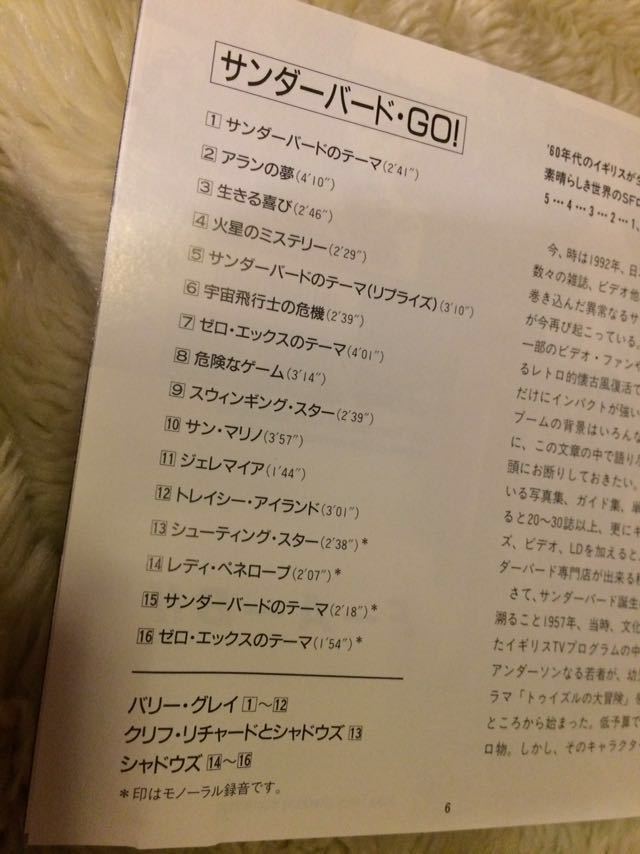 サンダーバード・GO!
1 サンダーバードのテーマ(2′41″)
2 アランの夢(4′10″)
3 生きる喜び(2′46″)
4 火星のミステリー(2′29″)
5 サンダーバードのテーマ(リプライズ)(3′10″)
6 宇宙飛行士の危機(2′39″)
7 ゼロ・エックスのテーマ(4′01″)
8 危険なゲーム(3′14″)
9 スウィンギング・スター(2′39″)
10 サン・マリノ(3′57″)
11 ジェレマイア(1′44″)
12 トレイシー・アイランド(3′01″)
13 シューティング・スター(2′38″)*
14 レディ・ペネロープ(2′07″)*
15 サンダーバードのテーマ(2′18″)*
16 ゼロ・エックスのテーマ(1′54″)*
バリー・グレイ 1〜12
クリフ・リチャードとシャドウズ 13
シャドウズ 14〜16
*印はモノーラル録音です。
'60年代のイギリスが
素晴らしき世界のSF
5…4…3…2…1、
今、時は1992年、日
数々の雑誌、ビデオ他
巻き込んだ異常なるサ
が今再び起こっている。
一部のビデオ・ファンや
るレトロ的懐古風復活で
だけにインパクトが強い
ブームの背景はいろんな
に、この文章の中で語り
頭にお断りしておきたい。
いる写真集、ガイド集、単
ると20〜30誌以上、更にギ
ズ、ビデオ、LDを加えると、
ダーバード専門店が出来る
さて、サンダーバード誕生
溯ること1957年、当時、文化
たイギリスTVプログラムの中
アンダーソンなる若者が、幼
ラマ「トゥイズルの大冒険」を
ところから始まった。低予算で
ロ物。しかし、そのキャラクター
6